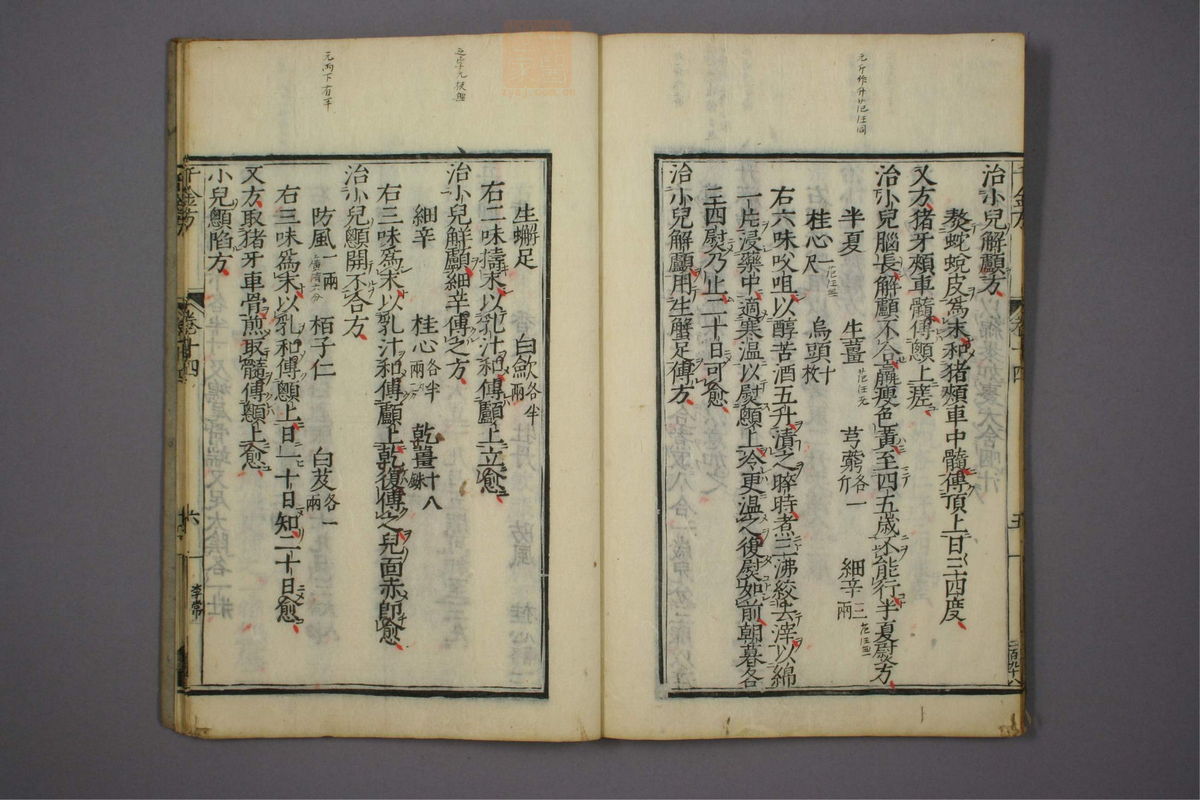 治小兒解顱方
熬蛇蛻皮爲末和猪頰車中髓傅頂上日三四度
又方猪牙頰車髓傅顖上瘥
治小兒腦長解顱不合羸瘦色黃至四五歲不能行半夏熨方
半夏 生薑 芎藭各一升 細辛三兩
桂心一尺 烏頭十枚
右六味㕮咀以醇苦酒五升漬之晬時煮三沸絞去滓以綿
一片浸藥中適寒温以熨顖上冷更温之復熨如前朝暮各
三四熨乃止二十日可愈
治小兒解顱用生蟹足傅方
生蠏足 白歛各半兩
右二味擣末以乳汁和傅顱上立愈
治小兒解顱細辛傅之方
細辛 桂心各半兩 乾薑十八銖
右三味爲末以乳汁和傅顱上乾復傅之兒面赤即愈
治小兒顖開不合方
防風一兩 栢子仁 白芨各一兩
右三味爲末以乳和傅顖上日一十日知二十日愈
又方取猪牙車骨煎取髓傅顖上愈
小兒顖陷方
千金方
卷十四
六
李常
五
元斤作升范汪同
元兩下有半